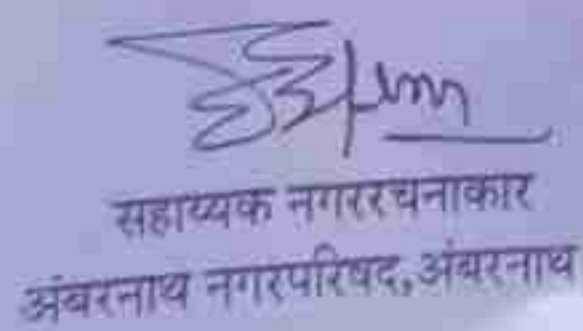 सहाय्यक नगररचनाकार
अंबरनाथ नगरपरिषद,अंबरनाथ